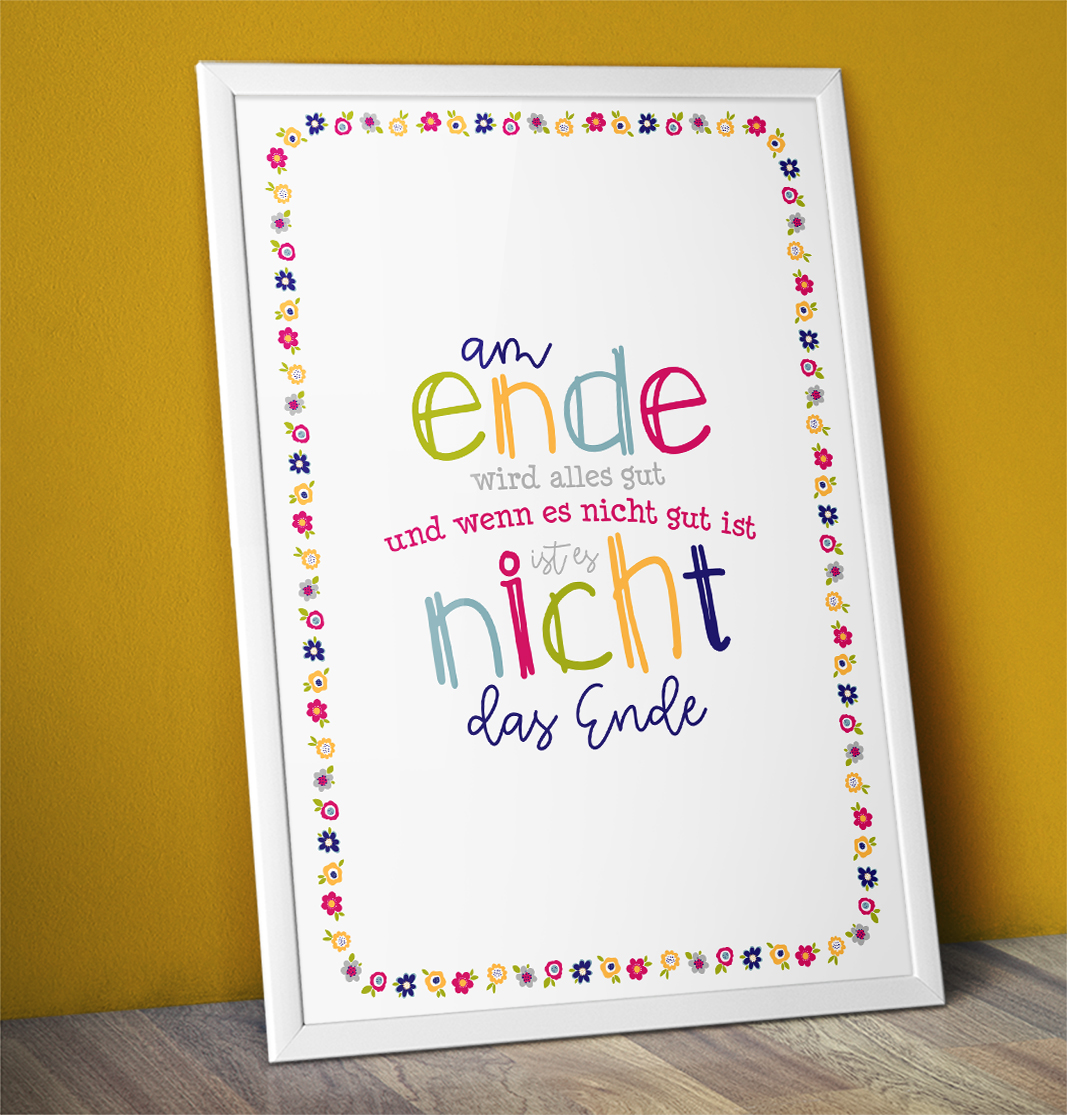 am
ende
wird alles gut
und wenn es nicht gut ist
ist es
nicht
das Ende